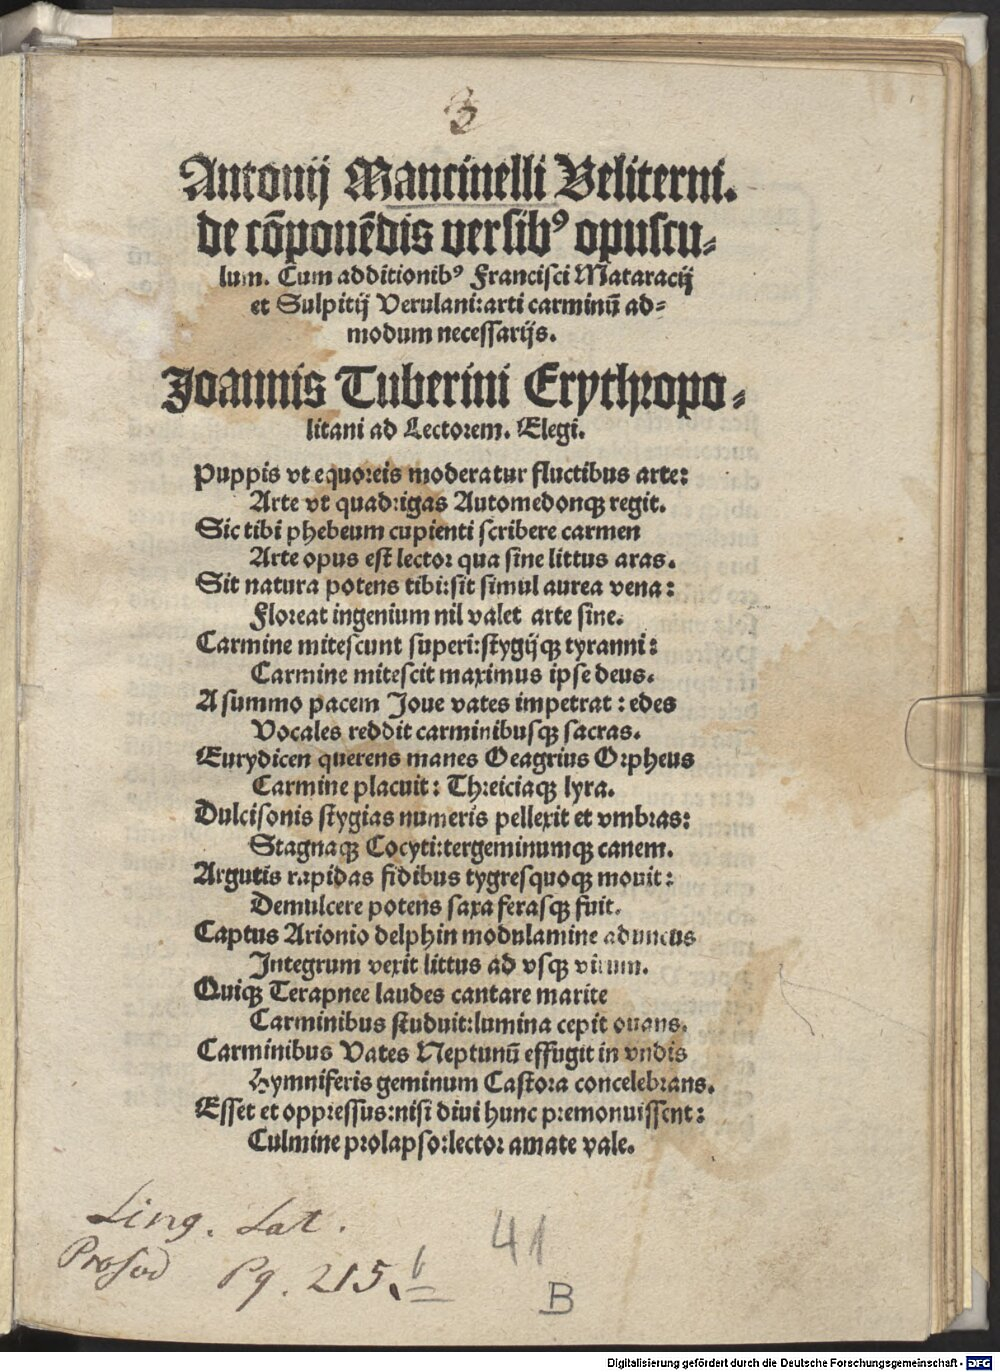 3
Antonij Mancinelli Veliterni.
de cōponēdis versibꝰ opuscu⸗
lum. Cum additionibꝰ Francisci Mataracij
et Sulpitij Verulani:arti carminū ad⸗
modum necessarijs.
Joannis Tuberini Erythropo⸗
litani ad Lectorem. Elegi.
Puppis vt equoreis moderatur fluctibus arte:
Arte vt quadrigas Automedonqꝫ regit.
Sic tibi phebeum cupienti scribere carmen
Arte opus est lector qua sine littus aras.
Sit natura potens tibi:sit simul aurea vena:
Floreat ingenium nil valet arte sine.
Carmine mitescunt superi:stygijqꝫ tyranni:
Carmine mitescit maximus ipse deus.
A summo pacem Joue vates impetrat : edes
Vocales reddit carminibusqꝫ sacras.
Eurydicen querens manes Oeagrius Orpheus
Carmine placuit: Threiciaqꝫ lyra.
Dulcisonis stygias numeris pellexit et vmbras:
Stagnaqꝫ Cocyti:tergeminumqꝫ canem.
Argutis rapidas fidibus tygresquoqꝫ mouit:
Demulcere potens saxa ferasqꝫ fuit.
Captus Arionio delphin modulamine aduncus
Integrum vexit littus ad vsqꝫ virum.
Quiqꝫ Terapnee laudes cantare marite
Carminibus studuit:lumina cepit ouans.
Carminibus Vates Neptunū effugit in vndis
Hymniferis geminum Castora concelebrans.
Esset et oppressus:nisi diui hunc premonuissent:
Culmine prolapso:lector amate vale.
Ling. Lat.
Prosod Pg. 215. b
41
B
Digitalisierung gefördert durch die Deutsche Forschungsgemeinschaft - DFG